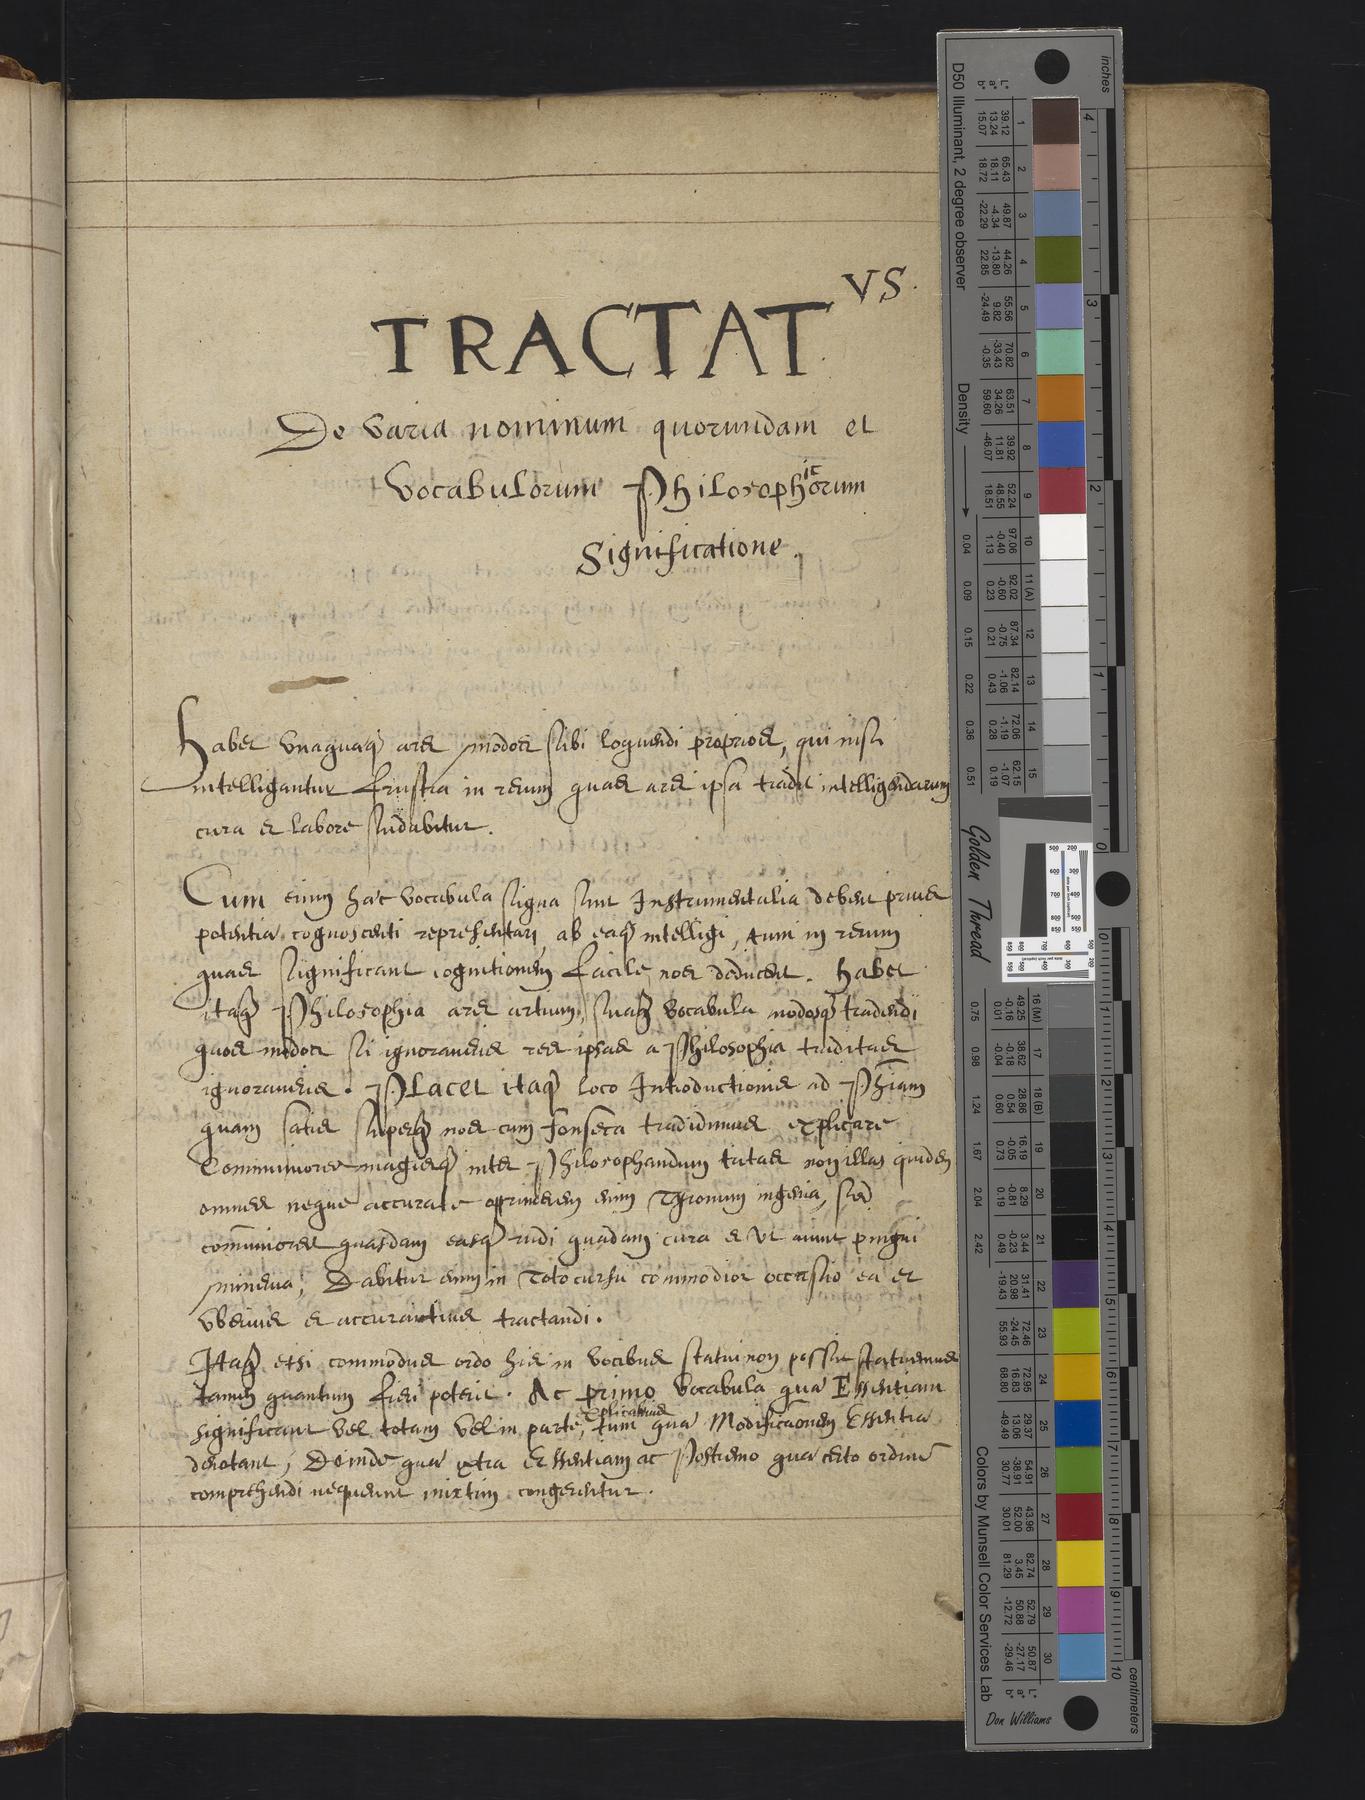 TRACTATVS.
De varia nominum quorundam et
Vocabulorum Philosophicorum
Significatione.
Habet vnaquaeq ars modos sibi loquendi proprios, qui nisi
intelligantur frustra in rerum quas ars ipsa tradit intelligendarum
cura et labore sudabitur.
Cum enim haec vocabula signa sint Instrumentalia debent prius
potentiae cognoscenti repraesentari, ab eaq intelligi, tum in rerum
quas significant cognitionem facile nos deducent. Habet
itaq Philosophia ars artium, suaq vocabula modosq tradendi
quos modos si ignoraueris res ipsas a Philosophia traditas
ignoraueris. Placet itaq loco Introductionis ad Phiam
quam satis superq nos cum Fonseca tradidimus explicare
Communiores magisq inter Philosophandum non illas quidem
omnes neque accurate enim Tyronum ingenia, sed
communiores quasdam easq rudi quadam cura et vt aiunt pingui
minerua, Dabitur enim in Toto cursu commodior occasio ea et
vberius et accuratius tractandi.
Itaq etsi commodus ordo his in vocibus statui non possit statuemus
tamen quantum fieri poterit. Ac primo Vocabula quae Essentiam
explicabimus
significant vel totam vel in parte, tum quae Modificationem Essentiae
denotant, Deinde quae extra Essentiam ac Postremo quae certo ordine
comprehendi nequeunt mixtim congerentur.
inches
centimeters
D50 Illuminant, 2 degree observer
Density
Golden Thread
Colors by Munsell Color Services Lab
Don Williams